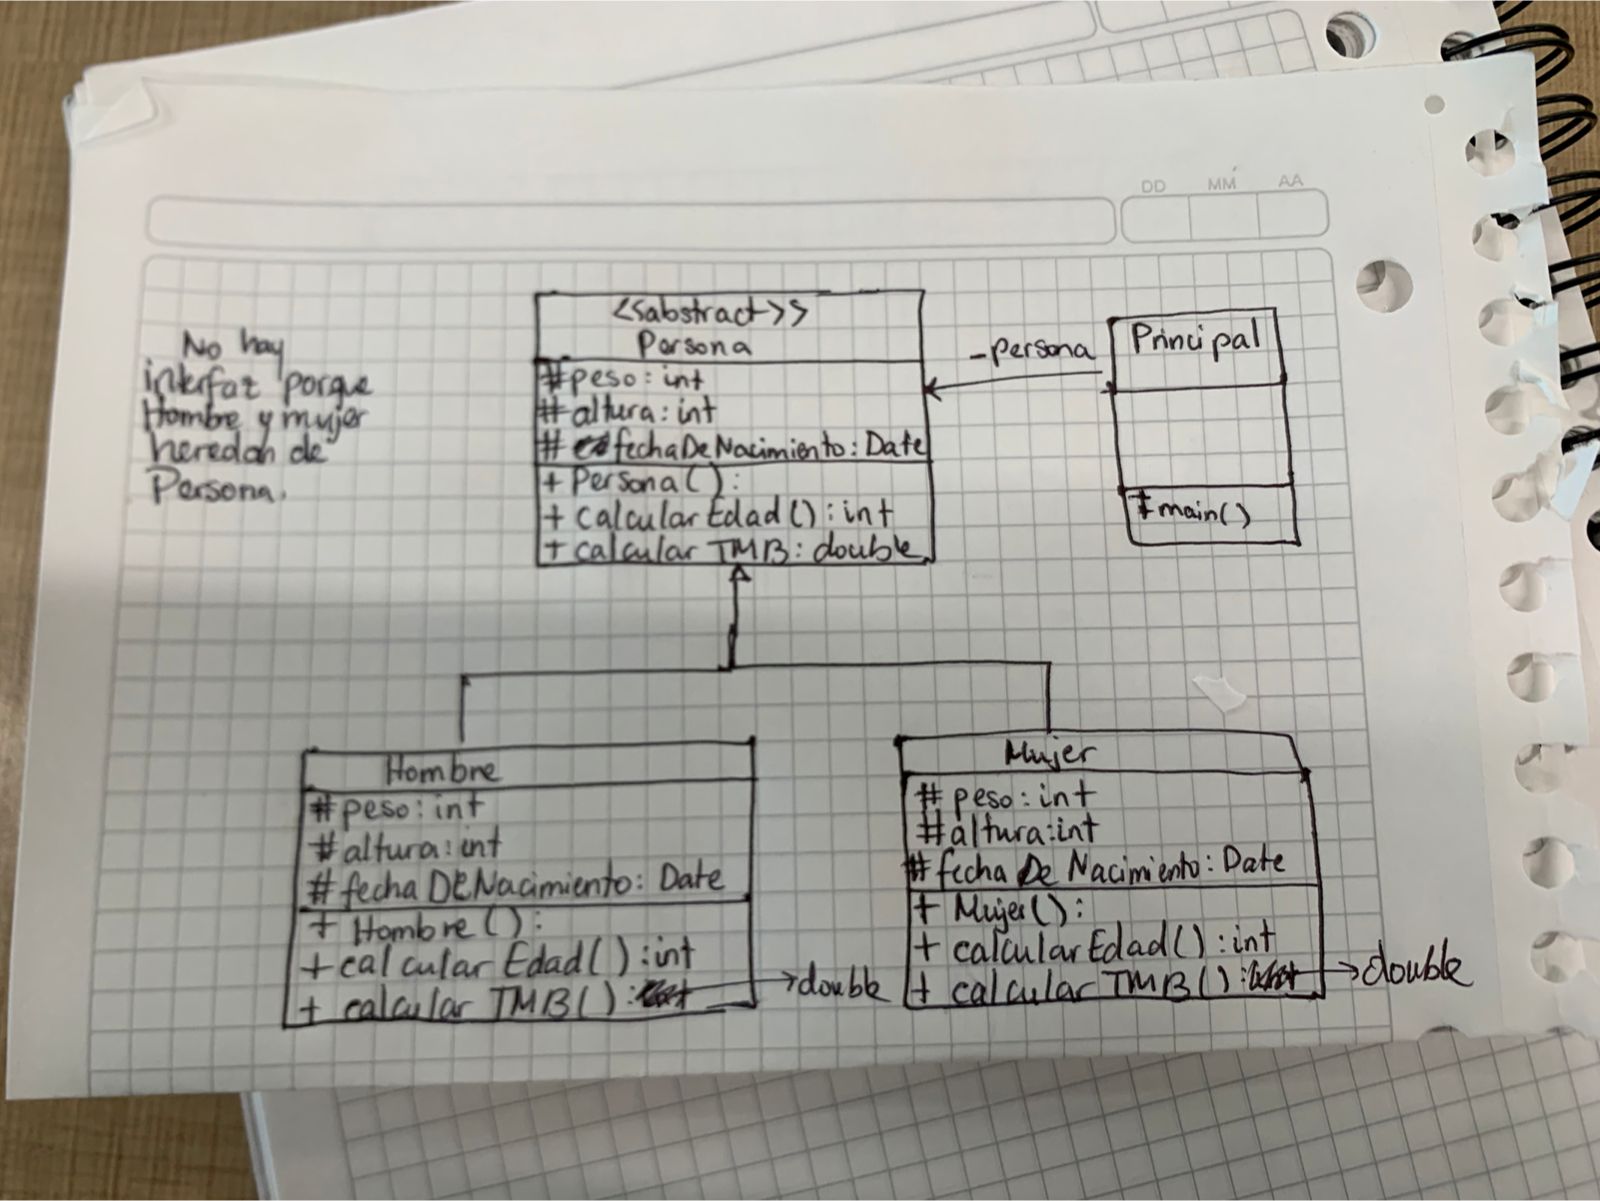 DD MM AA
No hay
interfaz porque
Hombre y mujer
heredan de
Persona.
<<abstract>>
Persona
#peso: int
#altura: int
# fechaDeNacimiento: Date
+ Persona():
+ calcularEdad(): int
+ calcular TMB: double
-persona
Principal
+main()
Hombre
#peso: int
#altura: int
# fecha DeNacimiento: Date
+ Hombre():
+calcular Edad(): int
+ calcular TMB(): →double
Mujer
# peso: int
#altura: int
#fecha De Nacimiento: Date
+ Mujer():
+ calcularEdad(): int
+ calcular TMB(): →double